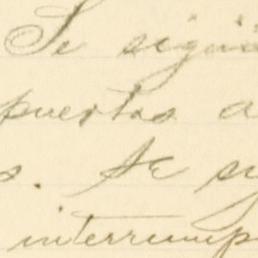 Se sigui
puertas a
s. Se su
interrump